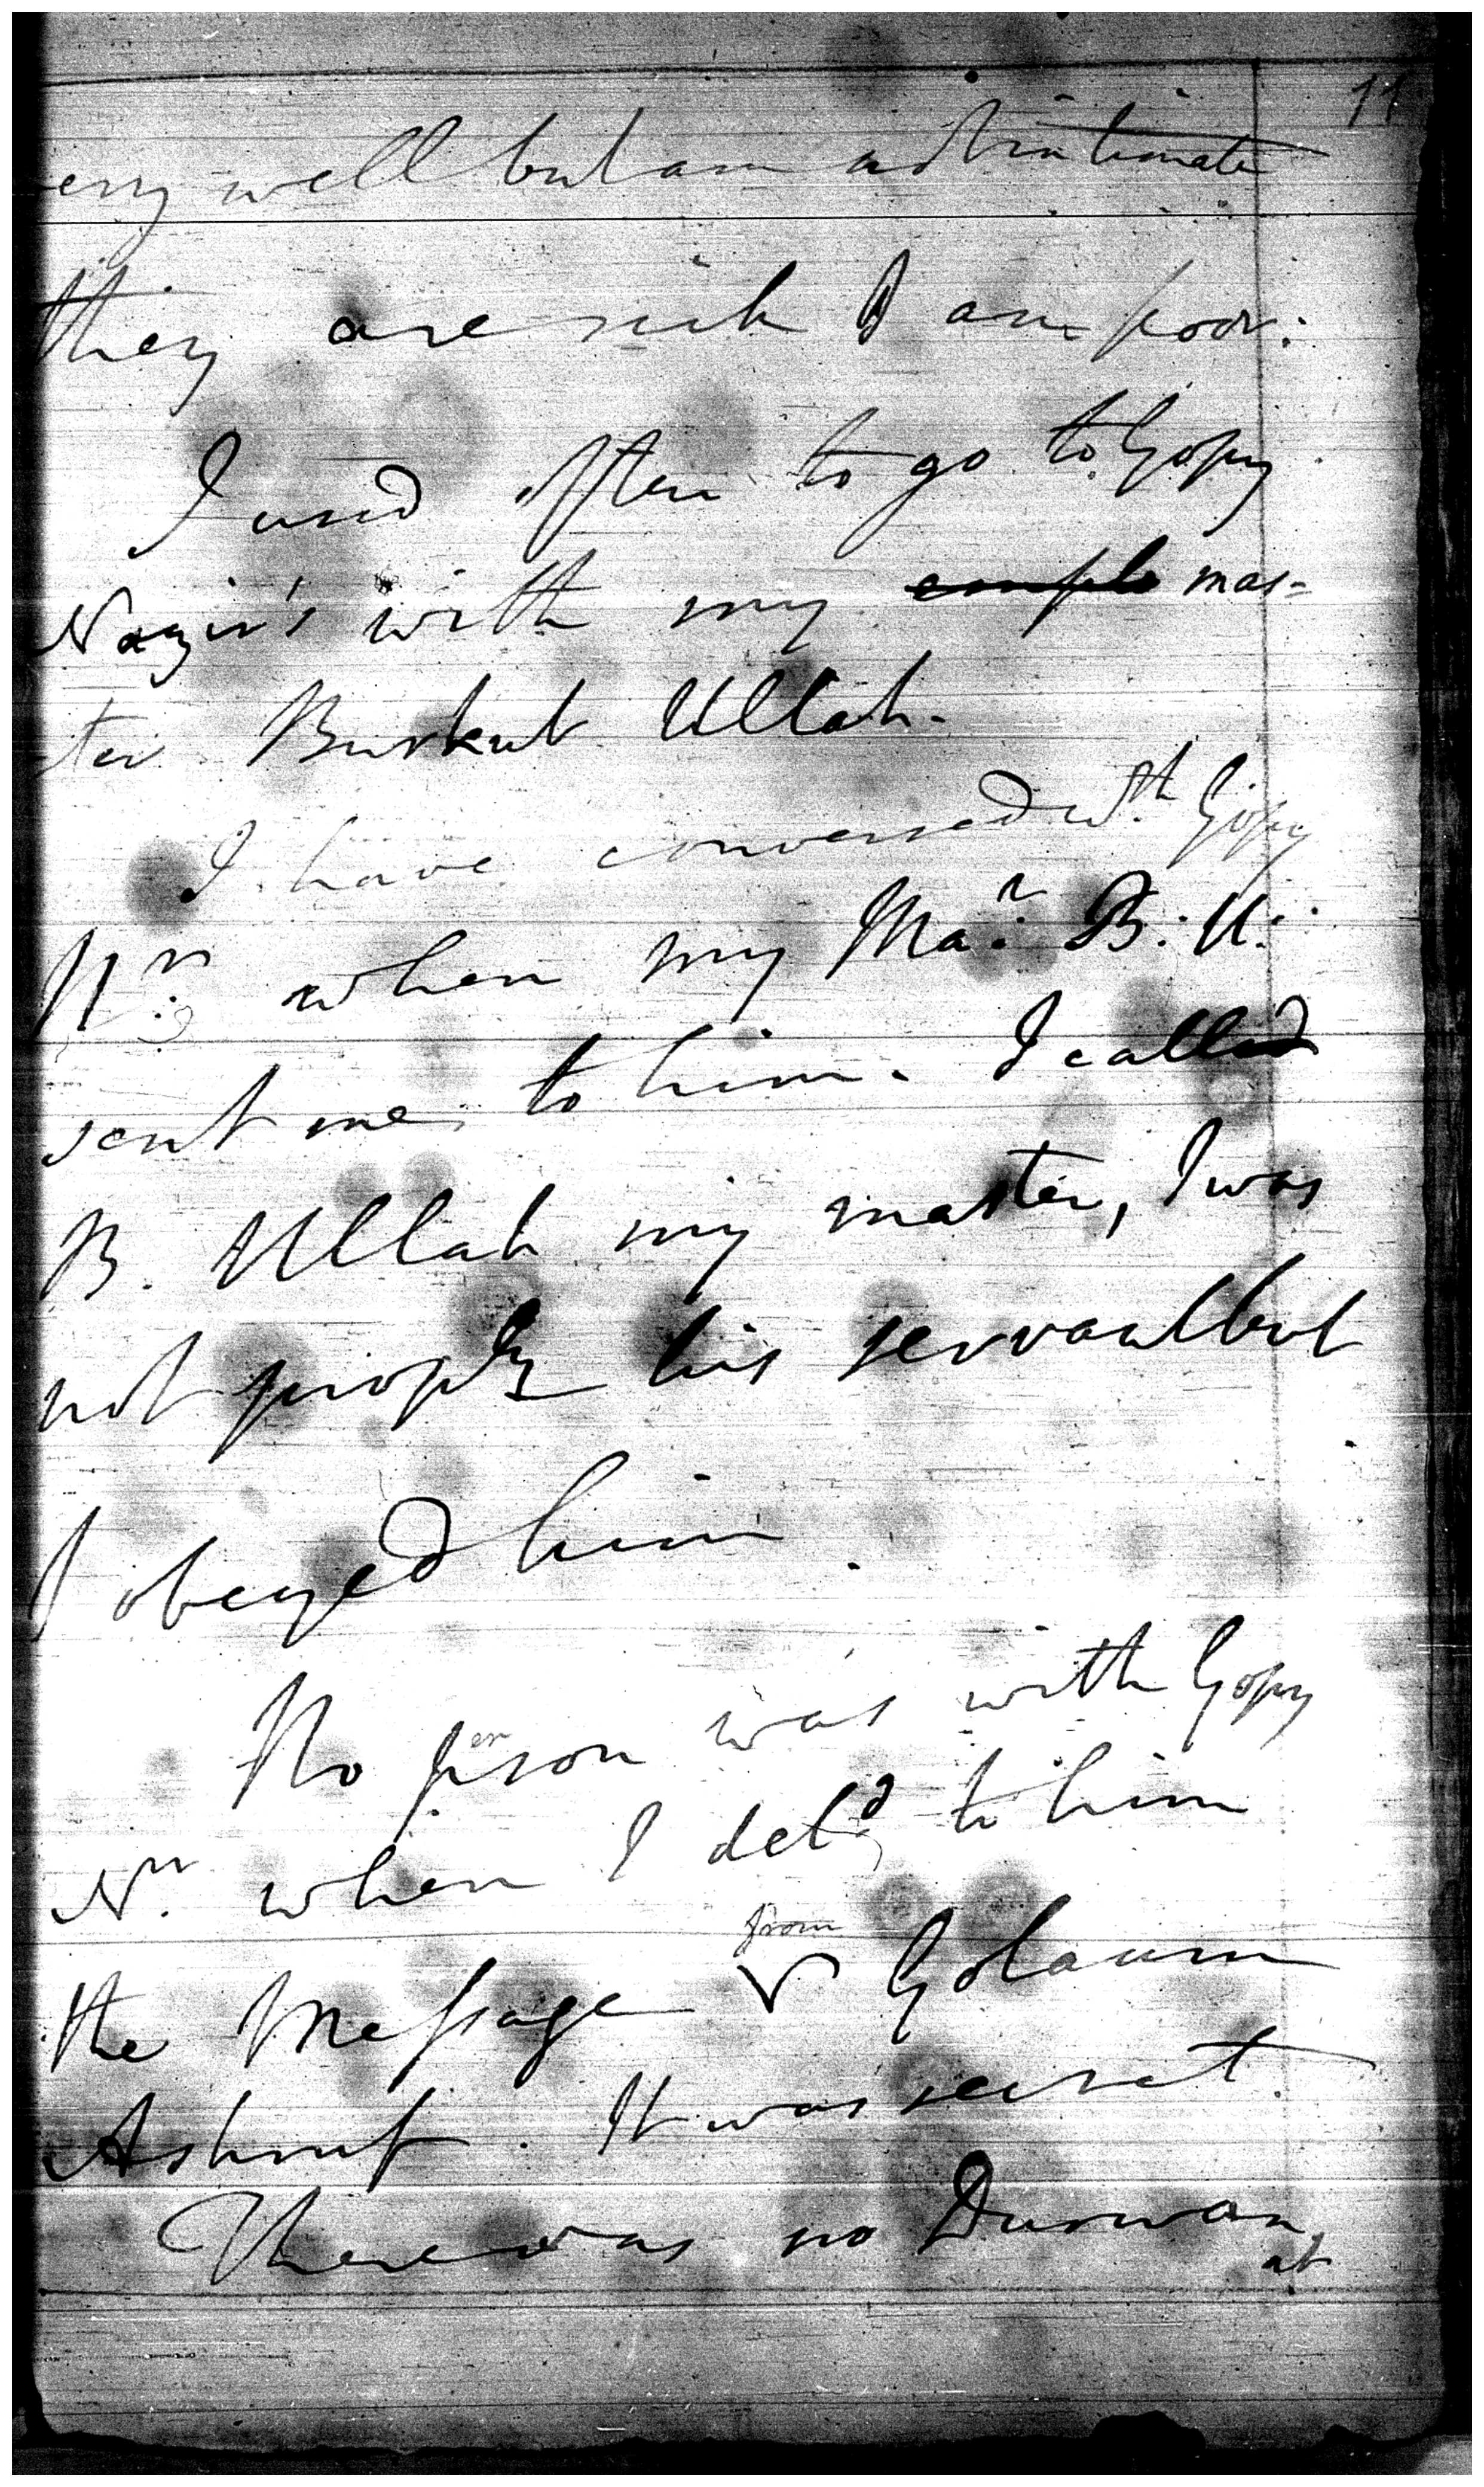 11
ery well but am not intimate
they are rich I am poor.
I used often to go to Gopy
Nazir's with my mas-
ter Burkut Ullah.
I have conversed wth Gopy
Nr. when my Mar. B. U.
sent me to him. I called
B. Ullah my master, I was
not proply his servant but
I obeyed him.
No person was with Gopy
Nr. when I deld to him
the Message from Golaum
Ashruf. It was secret.
There was no Durwan
at